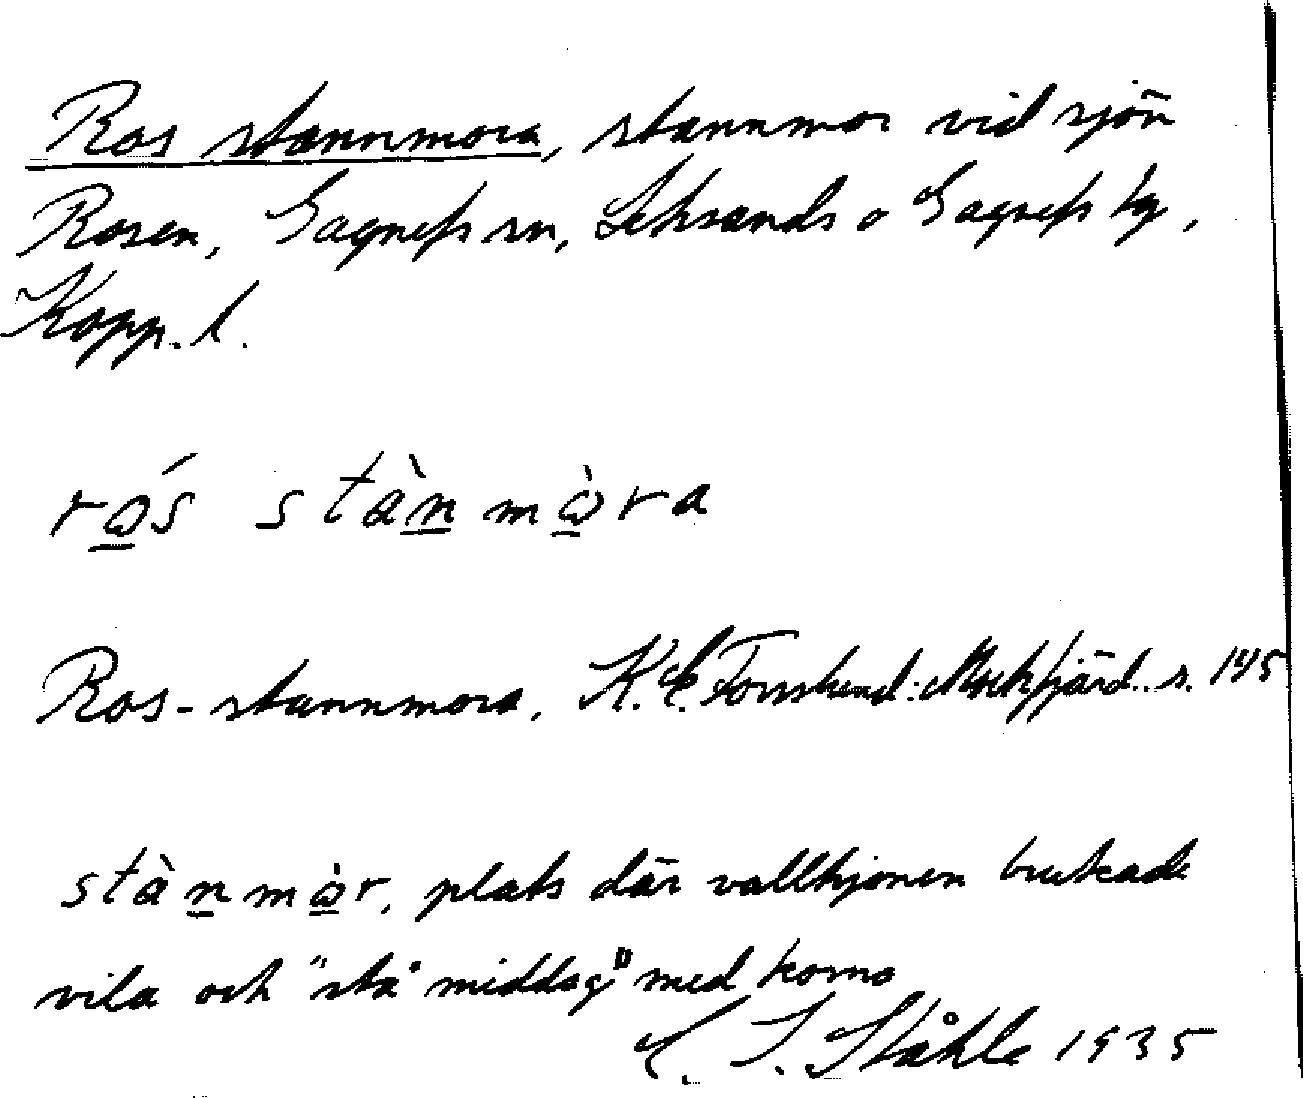 Ros stannmora, stannmor vid sjön
Rosen, Gagnefs sn, Leksands o Gagnefs tg,
Kopp. l.
rǫ́s stàn̲mǫ̀ra
Ros-stannmora, K. E. Forsslund: Mockfjärd.. s. 145
stàn̲mǫ̀r, plats där vallhjonen brukade
vila och "stå middag" med korna
C. I. Ståhle 1935